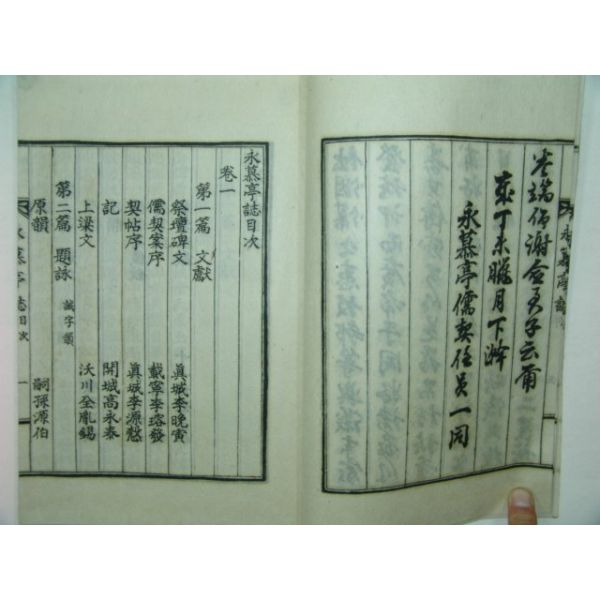 卷端仍謝僉君子云爾
歲丁未臘月下澣
永慕亭儒契任員一同
永慕亭誌目次
卷一
第一篇 文獻
祭壇碑文 眞城李晩寅
儒契案序 載寧李瑢發
契帖序 眞城李源愁
記 開城高永泰
上梁文 沃川全胤錫
第二篇 題詠 誠字韻
原韻 嗣孫源伯
永慕亭誌目次 一